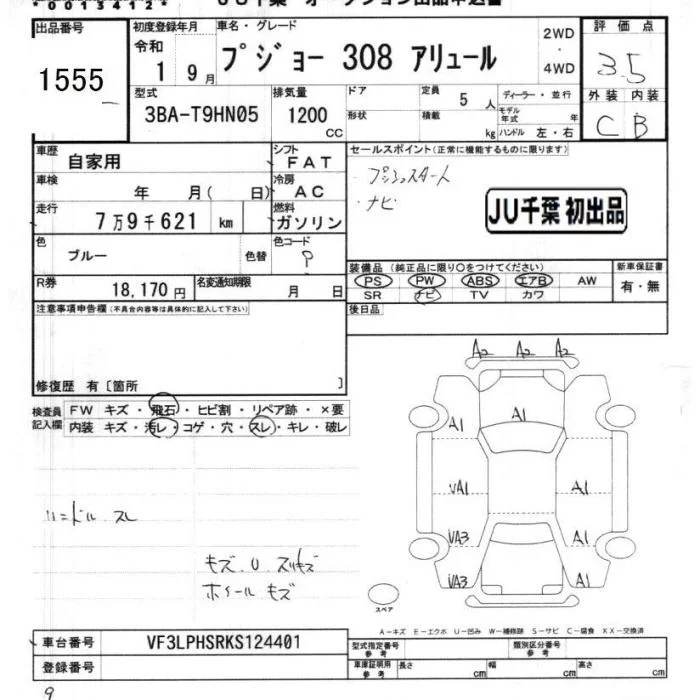 *00134121*
JU千葉 オークション出品申込書
出品番号
1555
初度登録年月
令和
1 9月
車名・グレード
プジョー 308 アリュール
2WD
・
4WD
評価点
3.5
外装 内装
C B
型式
3BA-T9HN05
排気量
1200
CC
ドア
形状
定員
5 人
積載
kg
ディーラー・並行
モデル年式 年
ハンドル 左・右
車歴
自家用
シフト
FAT
車検
年 月( 日)
冷房
AC
走行
7万9千621 km
燃料
ガソリン
色
ブルー
色替
色コード
R券
18,170円
名変通知期限
月 日
セールスポイント(正常に機能するものに限ります)
・プッシュスタート
・ナビ
JU千葉 初出品
装備品 (純正品に限り○をつけてください)
PS PW ABS エアB AW
SR ナビ TV カワ
新車保証書
有・無
後日品
注意事項申告欄(不具合内容等は具体的に記入して下さい)
修復歴 有〔箇所 〕
検査員記入欄
FW キズ・飛石・ヒビ割・リペア跡・×要
内装 キズ・汚レ・コゲ・穴・スレ・キレ・破レ
ハンドル スレ
キズ.U.スリキズ
ホイールキズ
A2 A2 A2
A1 A1
VA1 A1
VA3 A1
VA3 A1
スペア
A-キズ E-エクボ U-凹み W-補修跡 S-サビ C-腐食 XX-交換済
車台番号
VF3LPHSRKS124401
登録番号
型式指定番号
参考
類別区分番号
参考
車庫証明用
参考
長さ cm
幅 cm
高さ cm
9